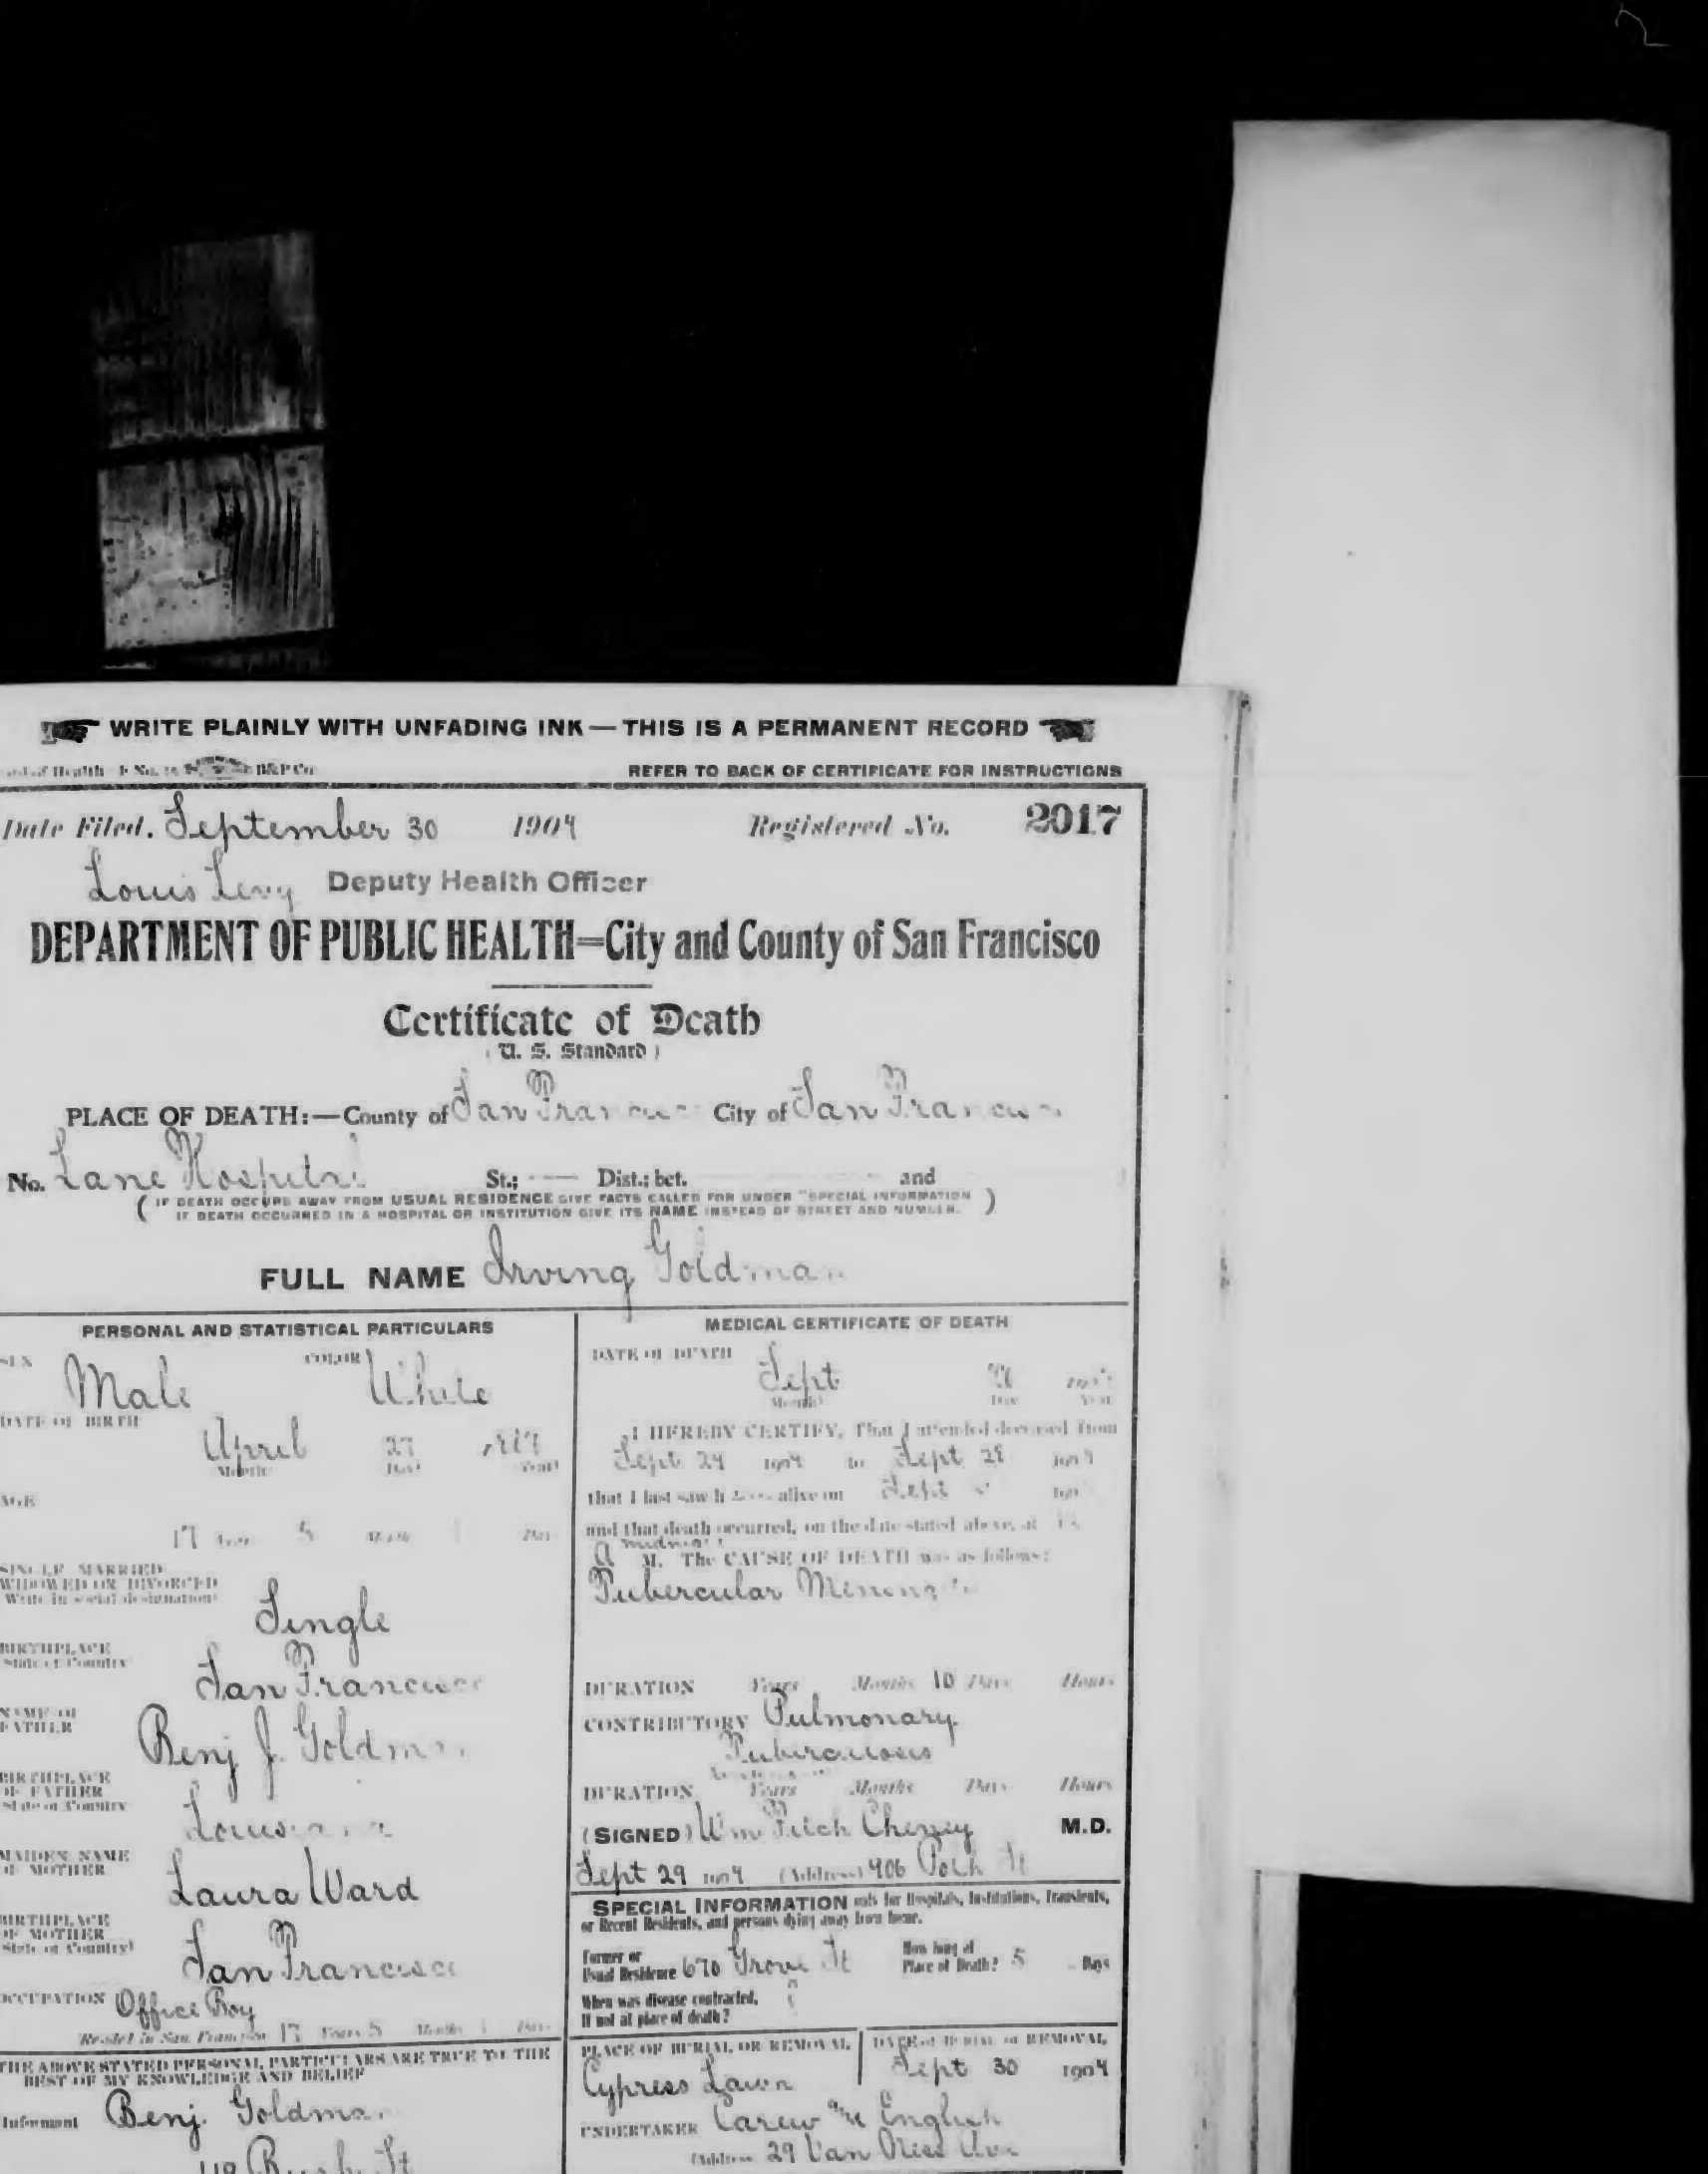 WRITE PLAINLY WITH UNFADING INK — THIS IS A PERMANENT RECORD
of Health F No. B&P Co
REFER TO BACK OF CERTIFICATE FOR INSTRUCTIONS
Date Filed. September 30 1904 Registered No. 2017
Louis Levy Deputy Health Officer
DEPARTMENT OF PUBLIC HEALTH=City and County of San Francisco
Certificate of Death
( U. S. Standard )
PLACE OF DEATH:—County of San Francisco City of San Francisco
No. Lane Hospital St.; — Dist.; bet. and
( IF DEATH OCCURS AWAY FROM USUAL RESIDENCE GIVE FACTS CALLED FOR UNDER "SPECIAL INFORMATION
IF DEATH OCCURRED IN A HOSPITAL OR INSTITUTION GIVE ITS NAME INSTEAD OF STREET AND NUMBER. )
FULL NAME Irving Goldman
PERSONAL AND STATISTICAL PARTICULARS
SEX Male COLOR White
DATE OF BIRTH
April 27
Month Day Year
AGE
17 Years 5 Months Days
SINGLE, MARRIED
WIDOWED OR DIVORCED
Write in social designation
Single
BIRTHPLACE
State or Country
San Francisco
NAME OF
FATHER
Benj J. Goldman
BIRTHPLACE
OF FATHER
State or Country
Louisiana
MAIDEN NAME
OF MOTHER
Laura Ward
BIRTHPLACE
OF MOTHER
State or Country)
San Francisco
OCCUPATION Office Boy
Resided in San Francisco 17 Years 5 Months Days
THE ABOVE STATED PERSONAL PARTICULARS ARE TRUE TO THE
BEST OF MY KNOWLEDGE AND BELIEF
Informant Benj. Goldman
Bush St
MEDICAL CERTIFICATE OF DEATH
DATE OF DEATH
Sept
Month Day Year
I HEREBY CERTIFY, That I attended deceased from
Sept 24 1904 to Sept 28 1904
that I last saw h alive on Sept 190
and that death occurred, on the date stated above, at 12
M. The CAUSE OF DEATH was as follows:
Tubercular Meningitis
DURATION Years Months 10 Days Hours
CONTRIBUTORY Pulmonary
Tuberculosis
DURATION Years Months Days Hours
(SIGNED) Wm Fitch Cheney M.D.
Sept 29 1904 (Address) 906 Polk St
SPECIAL INFORMATION only for Hospitals, Institutions, Transients,
or Recent Residents, and persons dying away from home.
Former or
Usual Residence 670 Grove St
How long at
Place of Death? 5 Days
When was disease contracted,
If not at place of death? ?
PLACE OF BURIAL OR REMOVAL
Cypress Lawn
DATE of BURIAL or REMOVAL
Sept 30 1904
UNDERTAKER Carew & English
(Address 29 Van Ness Ave